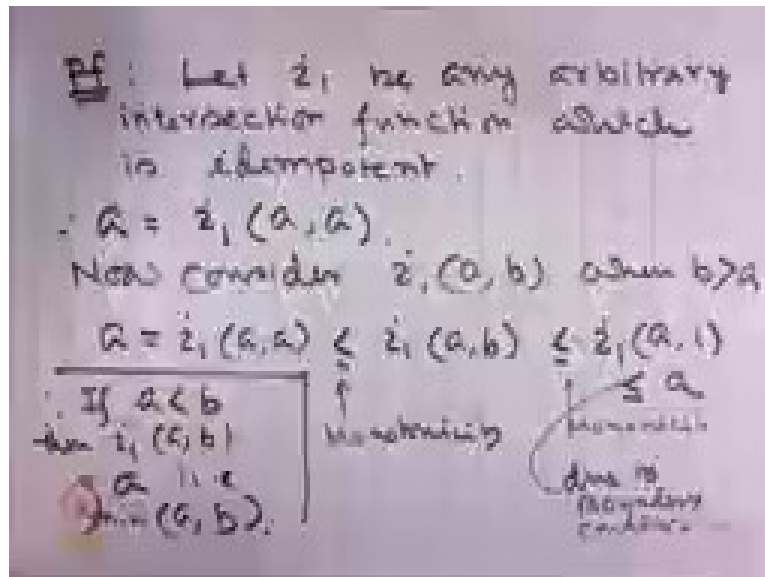 Pf : Let i₁ be any arbitrary
intersection function which
is idempotent.
∴ a = i₁ (a, a).
Now consider i₁(a, b) when b > a
a = i₁ (a, a) ≤ i₁ (a, b) ≤ i₁ (a, 1)
≤ a
monotonicity
monotonicity
due to
boundary
condition.
∴ If a < b
then i₁ (a, b)
= a i.e
min (a, b).